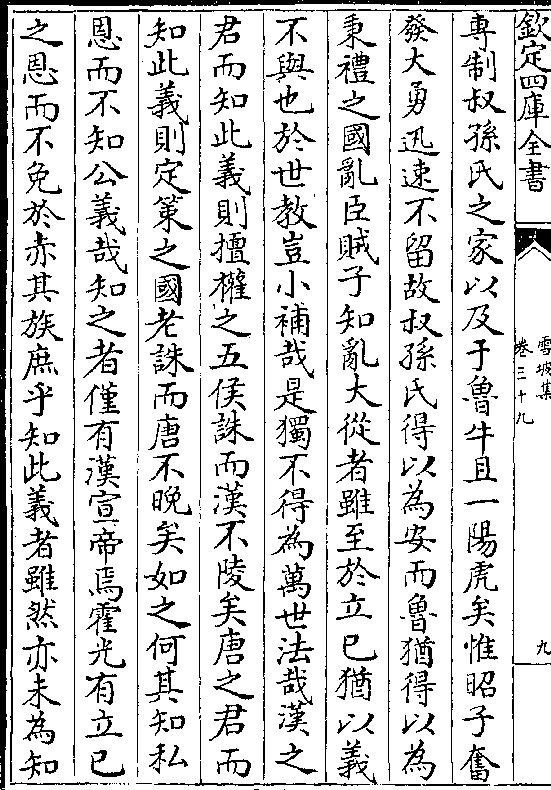 欽定四庫全書
雪坡集
卷三十九
九
專制叔孫氏之家以及于魯牛且一陽虎矣惟昭子奮
發大勇迅速不留故叔孫氏得以為安而魯猶得以為
秉禮之國亂臣賊子知亂大從者雖至於立已猶以義
不與也於世教豈小補哉是獨不得為萬世法哉漢之
君而知此義則擅權之五侯誅而漢不陵矣唐之君而
知此義則定策之國老誅而唐不晚矣如之何其知私
恩而不知公義哉知之者僅有漢宣帝焉霍光有立已
之恩而不免於赤其族庶乎知此義者雖然亦未為知